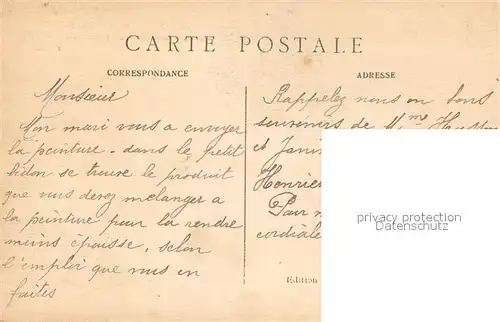 CARTE POSTALE
CORRESPONDANCE
Monsieur
Mon mari vous a envoyer
la peinture - dans le petit
bidon se trouve le produit
que vus devez melanger a
la peinture pour la rendre
moins épaisse, selon
l'emploi que vus en
faites
ADRESSE
Rappelez nous en bons
souvenirs de Mme
et
Pour
cordiale
Edition
privacy protection
Datenschutz